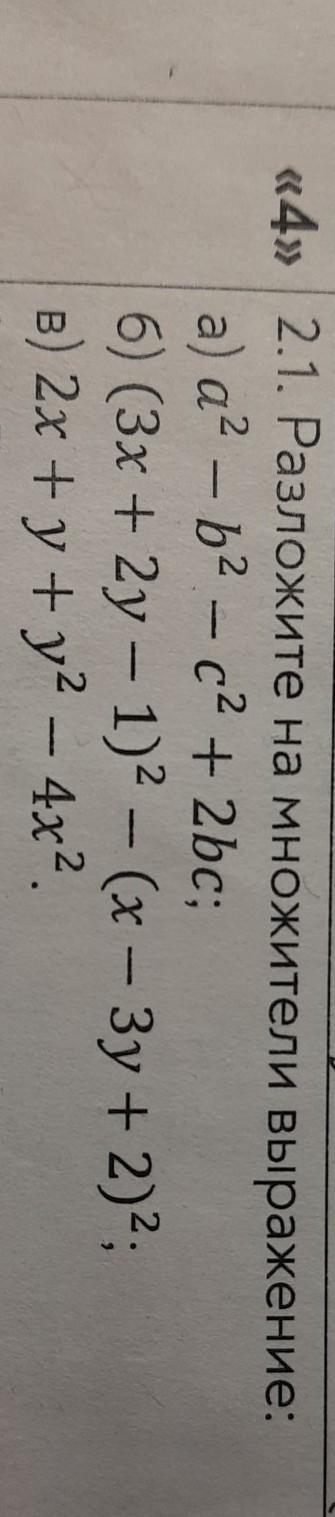 «4» 2.1. Разложите на множители выражение:
а) a² − b² − c² + 2bc;
б) (3x + 2y − 1)² − (x − 3y + 2)²;
в) 2x + y + y² − 4x².